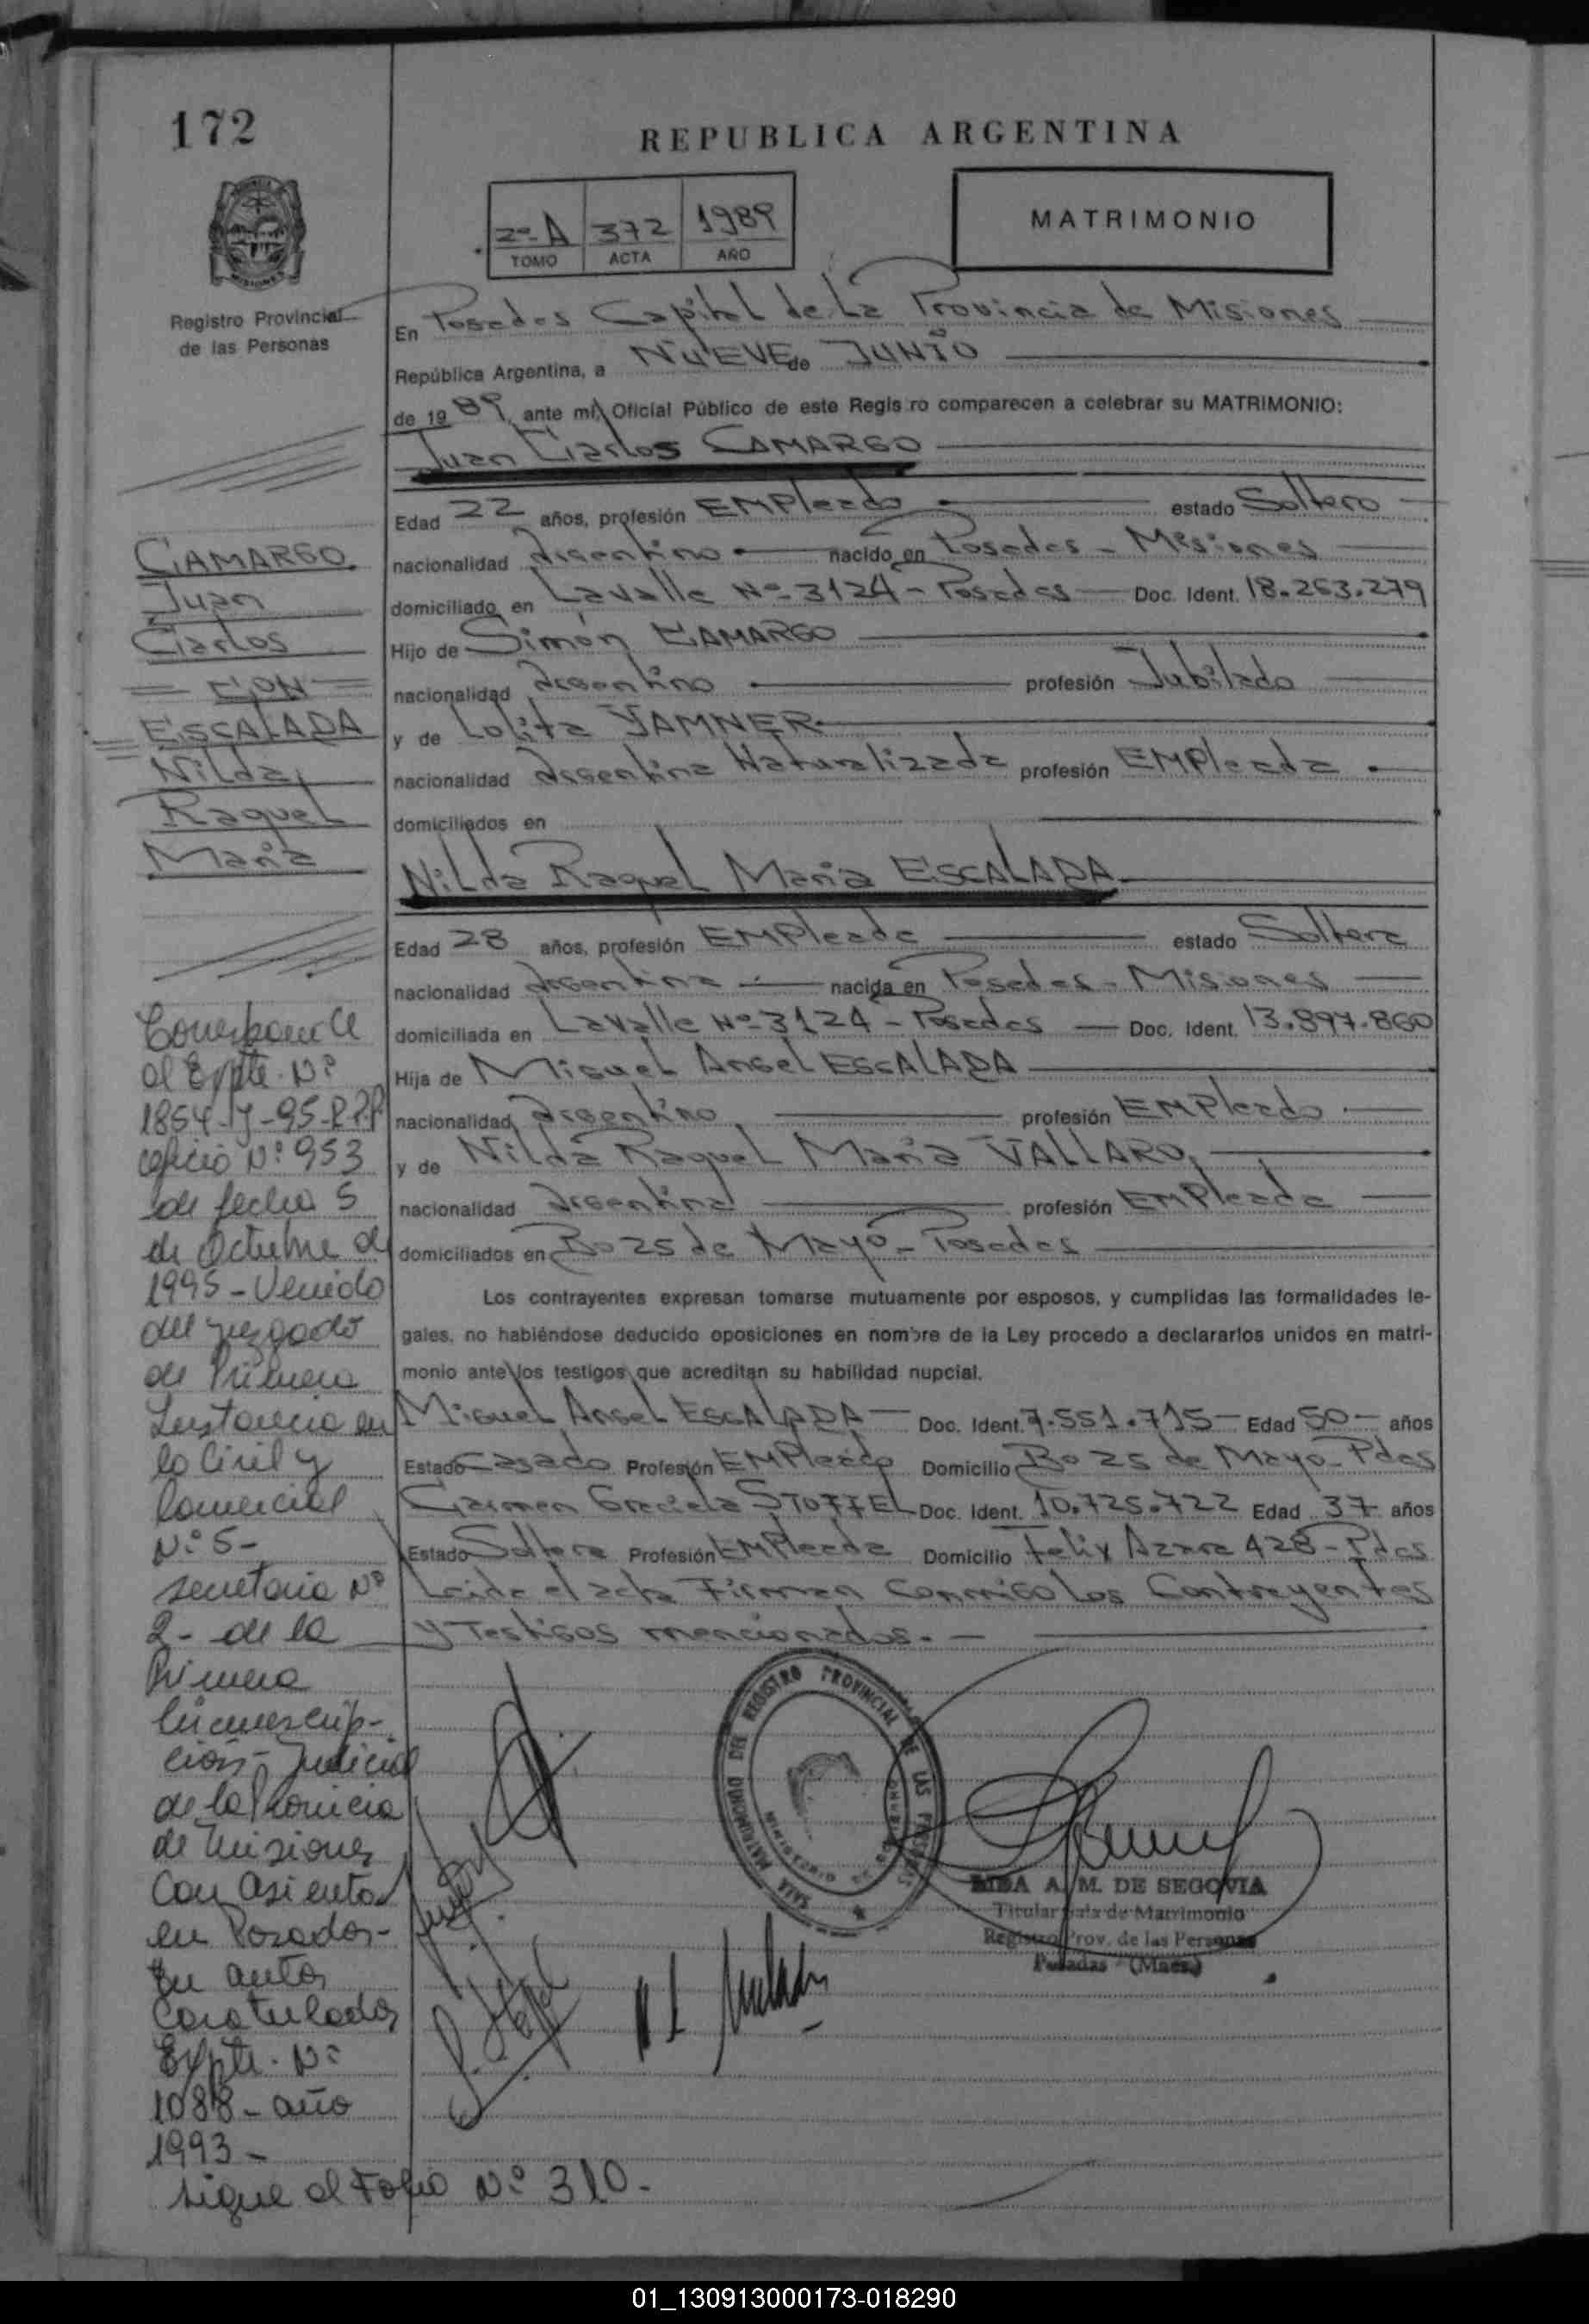 172
REPUBLICA ARGENTINA
2º-A 372 1989
TOMO ACTA AÑO
MATRIMONIO
Registro Provincial
de las Personas
En Posadas Capital de La Provincia de Misiones
República Argentina, a NUEVE de JUNIO
de 19 89, ante mí, Oficial Público de este Registro comparecen a celebrar su MATRIMONIO:
Juan Carlos CAMARGO
Edad 22 años, profesión EMPleado estado Soltero
nacionalidad Argentino nacido en Posadas - Misiones
domiciliado en Lavalle Nº-3124 - Posadas Doc. Ident. 18.263.279
Hijo de Simón CAMARGO
nacionalidad Argentino profesión Jubilado
y de Lolita YAMNER
nacionalidad Argentina Naturalizada profesión EMPleada
domiciliados en
Nilda Raquel María ESCALADA
Edad 28 años, profesión EMPleada estado Soltera
nacionalidad Argentina nacida en Posadas - Misiones
domiciliada en Lavalle Nº-3124 - Posadas Doc. Ident. 13.897.860
Hija de Miguel Angel ESCALADA
nacionalidad Argentino profesión EMPleado
y de Nilda Raquel María VALLARO
nacionalidad Argentina profesión EMPleada
domiciliados en Bo 25 de Mayo - Posadas
Los contrayentes expresan tomarse mutuamente por esposos, y cumplidas las formalidades le-
gales, no habiéndose deducido oposiciones en nombre de la Ley procedo a declararlos unidos en matri-
monio ante los testigos que acreditan su habilidad nupcial.
Miguel Angel ESCALADA - Doc. Ident. 7.551.715 - Edad 50 - años
Estado Casado Profesión EMPleado Domicilio Bo 25 de Mayo - Pdas
Carmen Graciela STOFFEL Doc. Ident. 10.725.722 Edad 37 años
Estado Soltera Profesión EMPleada Domicilio Felix Azara 428 - Pdas
Leida el acta Firman Conmigo Los Contrayentes
y Testigos mencionados. -
CAMARGO
Juan
Carlos
= CON =
ESCALADA
Nilda
Raquel
María
Corresponde
al Expte. Nº
1864-J-95-R.P.P
oficio Nº 953
de fecha 5
de Octubre de
1995 - Venido
del juzgado
de Primera
Instancia en
lo Civil y
Comercial
Nº 5 -
secretaria Nº
2 - de la
Primera
Circunscrip-
ción - Judicial
de la Provincia
de Misiones
Con asiento
en Posadas -
En autos
Caratulados
Expte. Nº
1088 - año
1993 -
sigue al Folio Nº 310.-
SALA MATRIMONIO DEL REGISTRO PROVINCIAL DE LAS PERSONAS
MINISTERIO DE GOBIERNO
A. M. DE SEGOVIA
Titular Sala de Matrimonio
Registro Prov. de las Personas
Posadas (Mnes.)
01_130913000173-018290